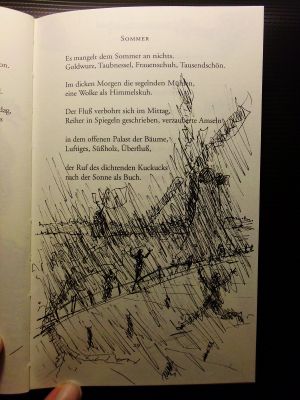 SOMMER
Es mangelt dem Sommer an nichts.
Goldwurz, Taubnessel, Frauenschuh, Tausendschön.
Im dicken Morgen die segelnden Mühlen,
eine Wolke als Himmelskuh.
Der Fluß verbohrt sich im Mittag,
Reiher in Spiegeln geschrieben, verzauberte Amseln
in dem offenen Palast der Bäume,
Luftiges, Süßholz, Überfluß,
der Ruf des dichtenden Kuckucks
nach der Sonne als Buch.